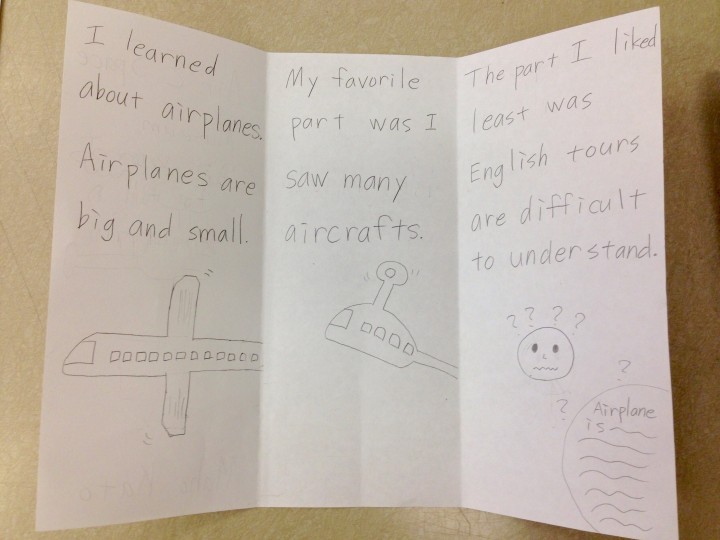 I learned
about airplanes.
Airplanes are
big and small.
My favorite
part was I
saw many
aircrafts.
The part I liked
least was
English tours
are difficult
to understand.
? ? ? ?
?
?
Airplane
is